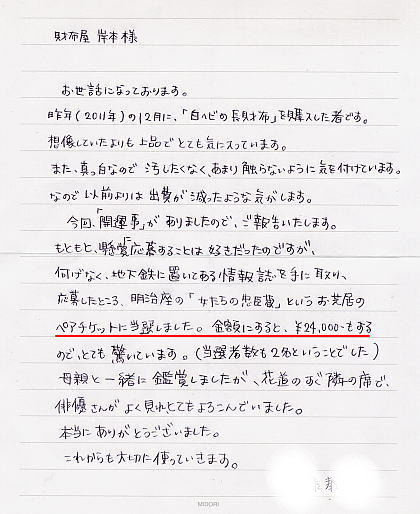 財布屋 岸本様
お世話になっております。
昨年(2011年)の12月に、「白ヘビの長財布」を購入した者です。
想像していたよりも上品でとても気に入っています。
また、真っ白なので汚したくなく、あまり触らないように気を付けています。
なので以前よりは出費が減ったような気がします。
今回、「開運事」がありましたので、ご報告いたします。
もともと、懸賞に応募することは好きだったのですが、
何げなく、地下鉄に置いてある情報誌を手に取り、
応募したところ、明治座の「女たちの忠臣蔵」というお芝居の
ペアチケットに当選しました。金額にすると、¥24,000-もする
ので、とても驚いています。(当選者数も2名ということでした)
母親と一緒に鑑賞しましたが、花道のすぐ隣の席で、
俳優さんがよく見れとてもよろこんでいました。
本当にありがとうございました。
これからも大切に使っていきます。
MIDORI